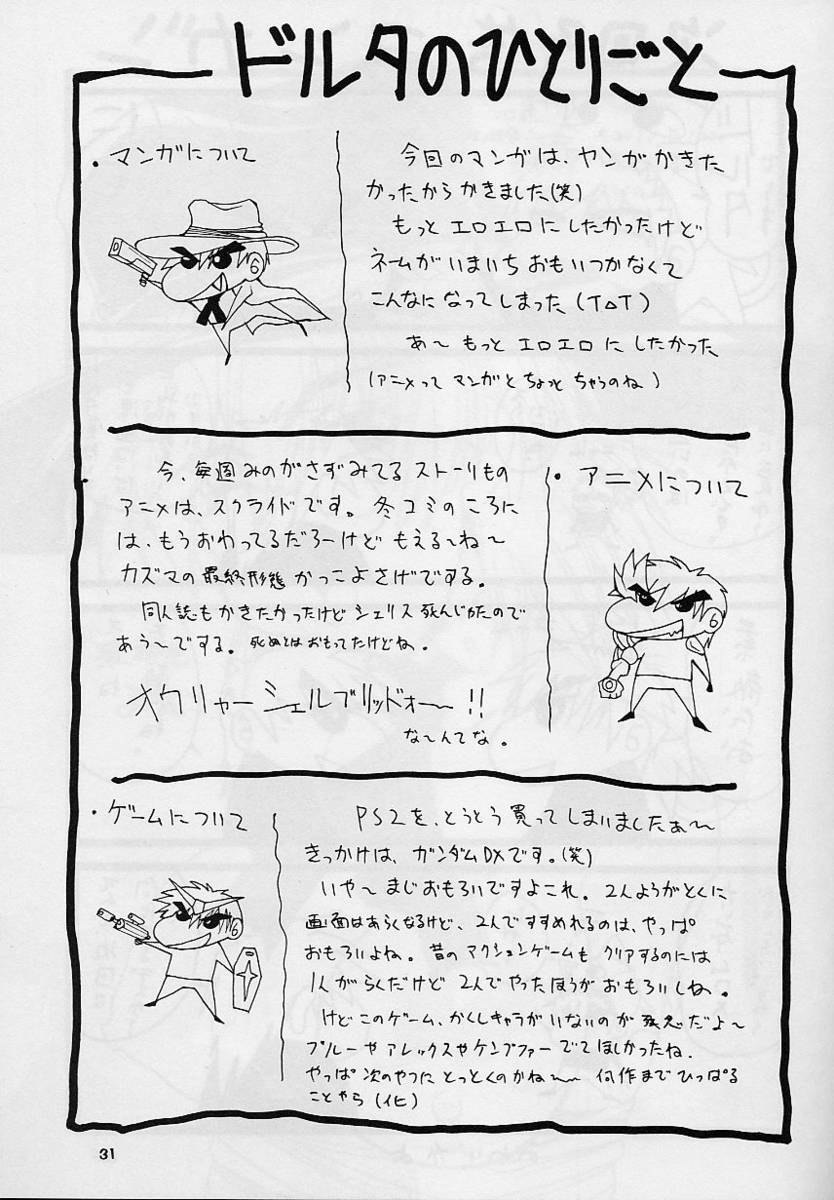 ドルタのひとりごと
・マンガについて
今回のマンガは、ヤンがかきた
かったからかきました(笑)
もっとエロエロにしたかったけど
ネームがいまいちおもいつかなくて
こんなになってしまった(T△T)
あ〜もっとエロエロにしたかった
(アニメってマンガとちょっとちゃうのね)
・アニメについて
今、毎週みのがさずみてるストーリもの
アニメは、スクライドです。冬コミのころに
は、もうおわってるだろーけどもえる〜ね〜
カズマの最終形態かっこよさげでする。
同人誌もかきたかったけどシェリス死んじがたので
あう〜でする。死ぬとはおもてたけどね。
オクリャーシェルブリッドォー〜!!
な〜んてな。
・ゲームについて
PS2を、とうとう買ってしまいましたぁ〜
きっかけは、ガンダムDXです。(笑)
いや〜まじおもろいですよこれ。2人ようがとくに
画面はあらくなるけど、2人ですすめれるのは、やっぱ
おもろいよね。昔のアクションゲームもクリアするのには
1人がらくだけど2人でやったほうがおもろいしね。
けどこのゲーム、かくしキャラがいないのが残念だよ〜
ブルーやアレックスやケンプファーでてほしかったね.
やっぱ次のやつにとっとくのかね〜〜何作までひっぱる
ことやら(化)
31